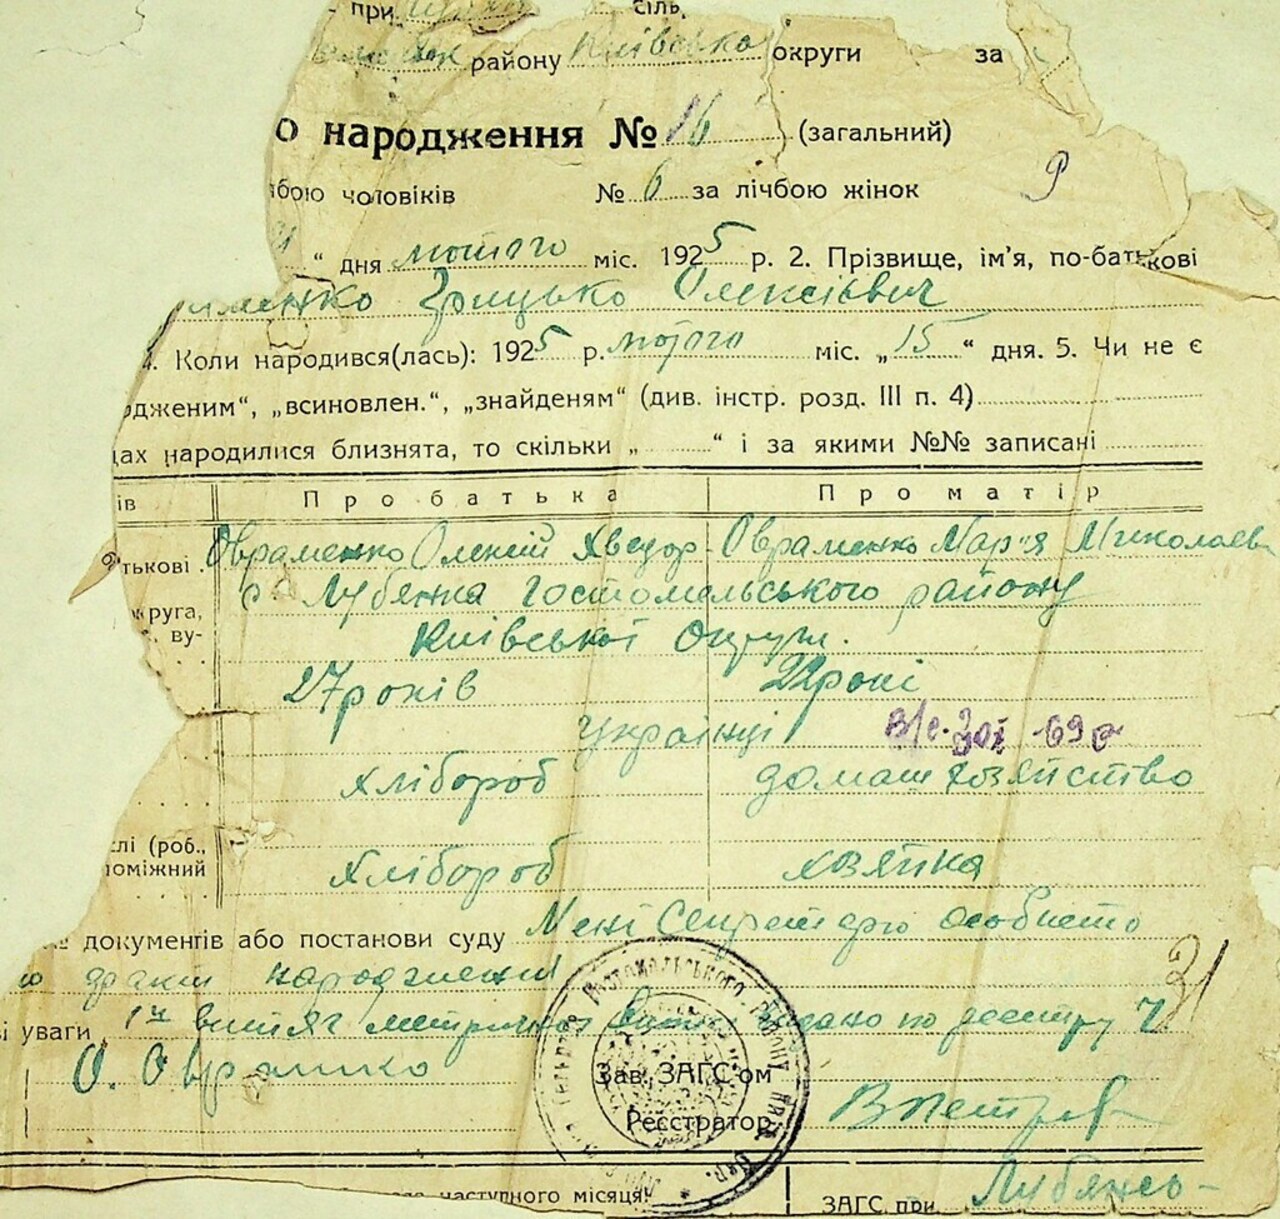 при сіль.
району Київська округи за
о народження № 16 (загальний)
бою чоловіків № 6 за лічбою жінок 9
“ дня лютого міс. 1925 р. 2. Прізвище, ім'я, по-батькові
менко Грицько Олексієвич
4. Коли народився(лась): 1925 р. лютого міс. „15“ дня. 5. Чи не є
дженим“, „всиновлен.“, „знайденям“ (див. інстр. розд. III п. 4)
дах народилися близнята, то скільки „ “ і за якими №№ записані
ів Про батька Про матір
тькові Овраменко Олексій Хведор- Овраменко Мар'я Миколаев
с. Лубянка Гостомельського району
круга,
ву- Київської Округи.
27 років 22 роки
Українці в/с. 69 р
хлібороб домаш хозяйство
слі (роб.,
поміжний хлібороб хозяйка
документів або постанови суду Мені Секретарю особисто
факт народження 31
уваги 1й витяг метричної видано по реестру 7
О. Овраменко
Зав. ЗАГС'ом
Реєстратор В Петров
наступного місяця.
ЗАГС при Лубянсь-